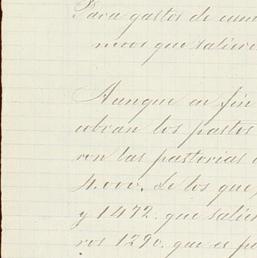 Para gastos de
que salieron
Aunque en fin
cobran los pastos
con las pastorias
4.000. De los que
y 1472. que salie
ros 1290. que se pa